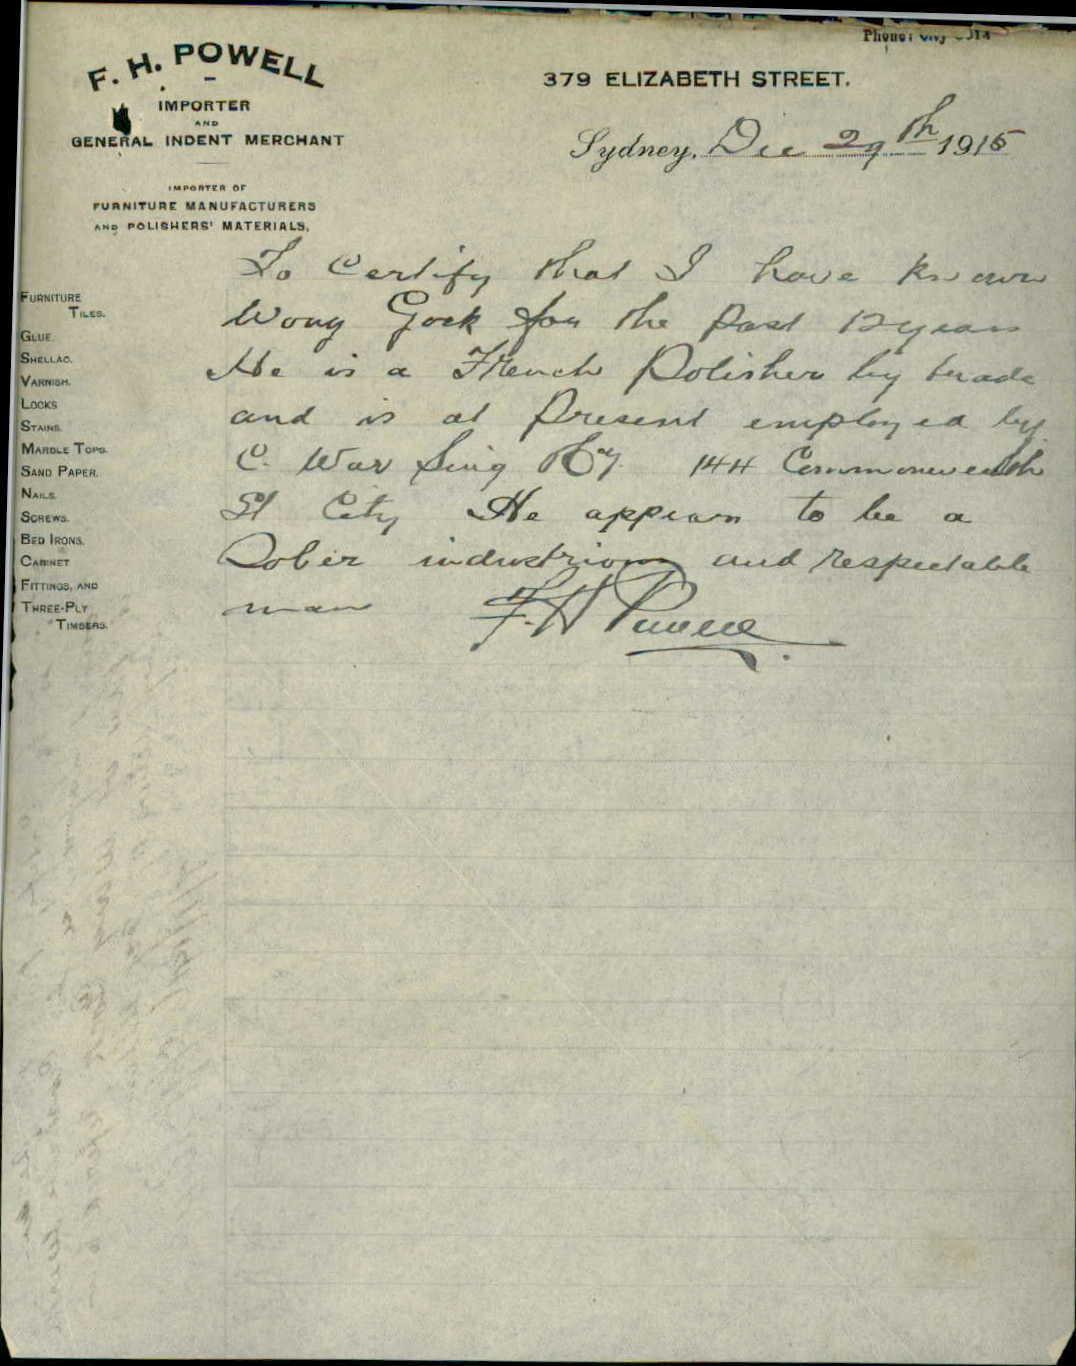 Phone: City
F. H. POWELL
IMPORTER
AND
GENERAL INDENT MERCHANT
IMPORTER OF
FURNITURE MANUFACTURERS
AND POLISHERS' MATERIALS.
379 ELIZABETH STREET.
Sydney, Dec 29th 1915
FURNITURE
TILES.
GLUE.
SHELLAC.
VARNISH.
LOCKS
STAINS.
MARBLE TOPS.
SAND PAPER.
NAILS.
SCREWS.
BED IRONS.
CABINET
FITTINGS, AND
THREE-PLY
TIMBERS.
To Certify that I have known
Wong Gock for the past 12 years
He is a French Polisher by trade
and is at Present employed by
C. War Sing 144 Commonwealth
St City He appears to be a
Sober industrious and respectable
man F. H Powell